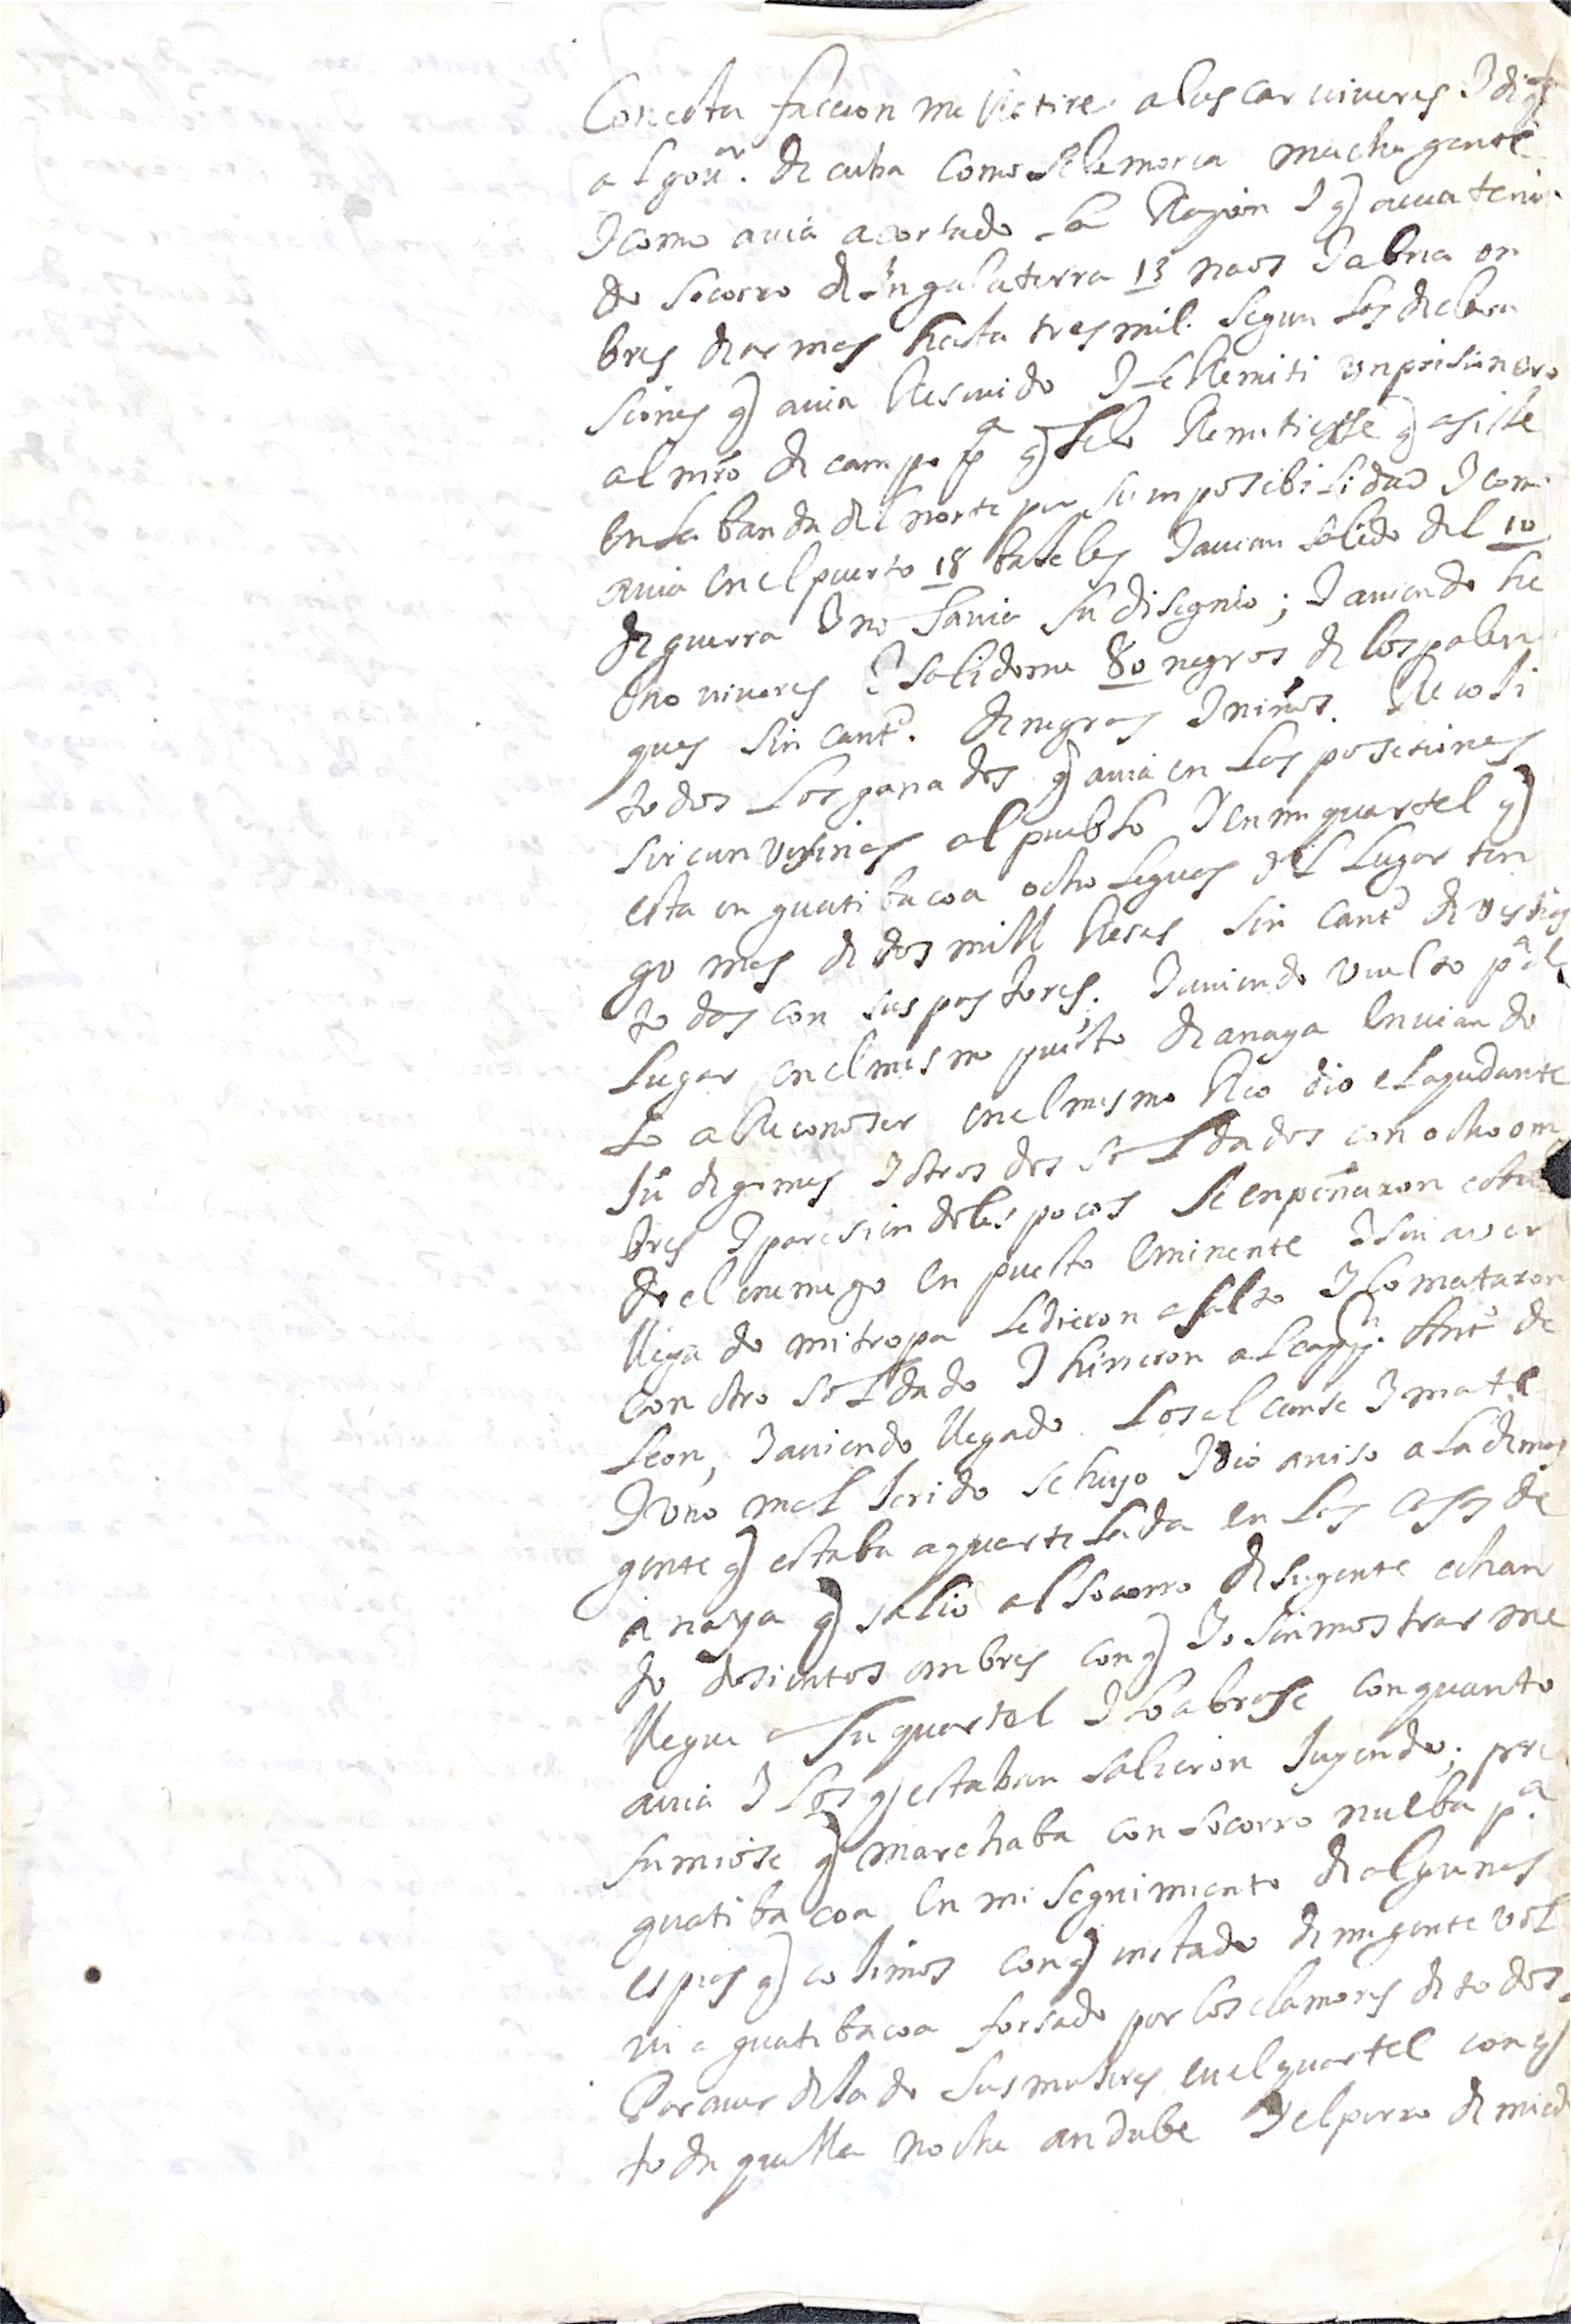 Con esta faccion me Retire a buscar viveres I di q
al gou.or de cuba Como se le moria mucha gente
I como avia acortado la Raçion I q avia teni
do Socorro de Ingalaterra 13 naos I abria on
bres de armas hasta tres mil. Segun las declara
siones q avia Resiuido I le Remiti un prisionero
al mro de campo pa q se lo Remitiesse q asiste
en la banda del norte por su inposibilidad I como
avia en el puerto 18 baseles I avian salido del 10
de guerra I no Savia su disegnio; I aviendo he
cho viveres I salidome 80 negros de los palen
ques sin cantd. de negras I niños. Recoji
todos Los ganados q avia en Las posesiones
sircunvesinas al pueblo I en mi quartel q
esta en guatibacoa ocho Leguas del Lugar ten
go mas de dos mill Reses sin cantd de vestias
todas con sus pastores. I aviendo vuelto pa el
Lugar en el mesmo puesto de anaya enviando
Lo a Reconoser en el mesmo Rio dio el ayudante
Ju de gamas I otros dos soldados con ocho om
bres I paresiendoles pocos se enpeñaron estan
do el enemigo en puesto eminente I sin aver
llegado mi tropa Le dieron asalto I Lo mataron
con otro soldado I hirieron al cappn. Anto de
Leon, I aviendo llegado Los alcanse I mate
I uno mal herido se huyo I dio aviso a La demas
gente q estaba aquartelada en Las casas de
anaya q salio al socorro de su gente echan
do dosientos onbres con q Io sin mostrarme
llegue a su quartel I Lo abrase con quanto
avia I Los q estaban salieron huyendo; pre
sumiose q marchaba con socorro nuebo pa.
guatibacoa en mi seguimiento de algunas
espias q cojimos con q mitado de mi gente vol
vi a guatibacoa forsado por los clamores de todos
Por aver dejado sus mujeres en el quartel con q
toda quella noche andube I el perro de miedo